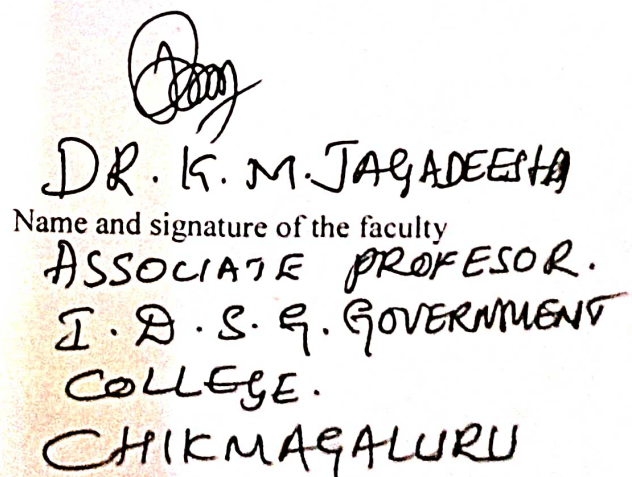 DR. K. M. JAGADEESHA
Name and signature of the faculty
ASSOCIATE PROFESOR.
I. D. S. G. GOVERNMENT
COLLEGE.
CHIKMAGALURU